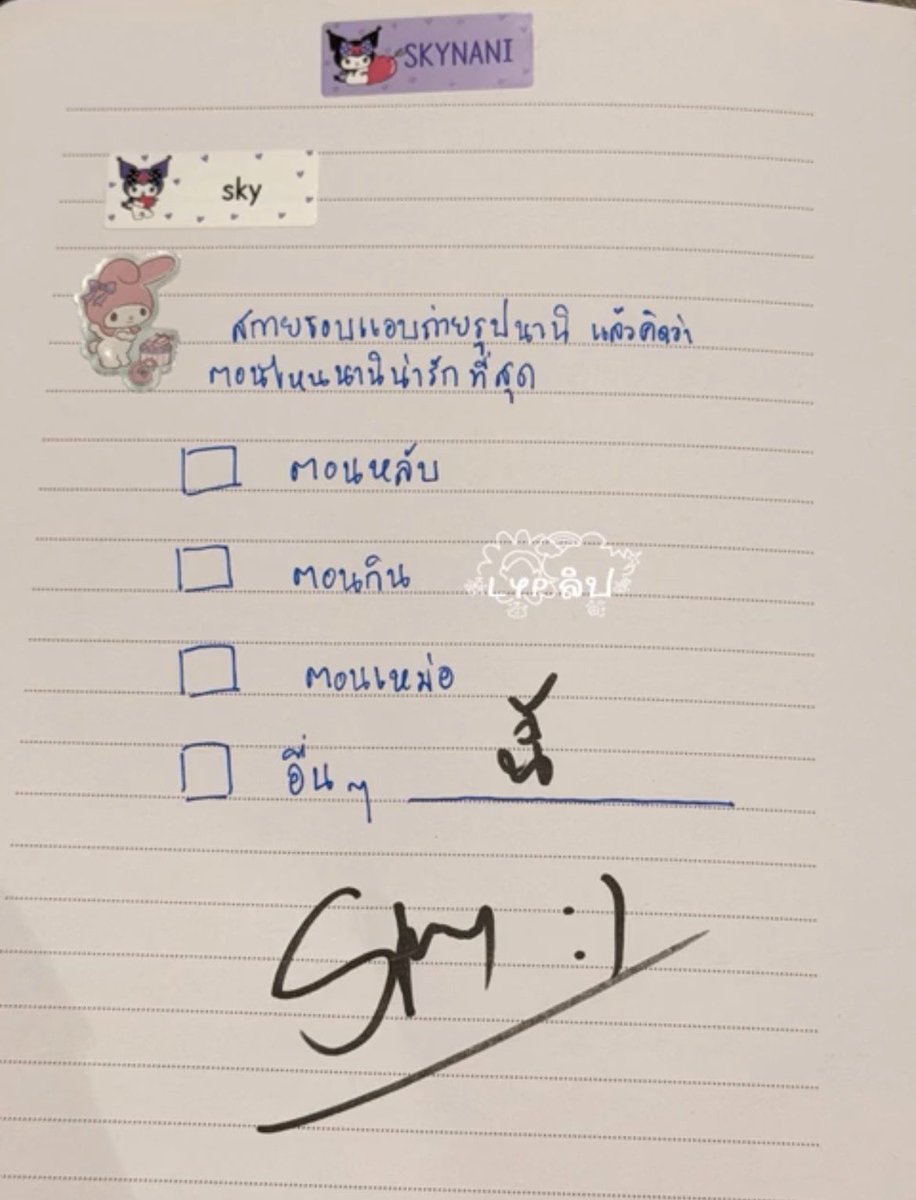 SKYNANI
sky
สกายชอบแอบถ่ายรูปนานิ แล้วคิดว่า
ตอนไหนนานิน่ารักที่สุด
ตอนหลับ
ตอนกิน
ตอนเหม่อ
อื่นๆ
Sky :)